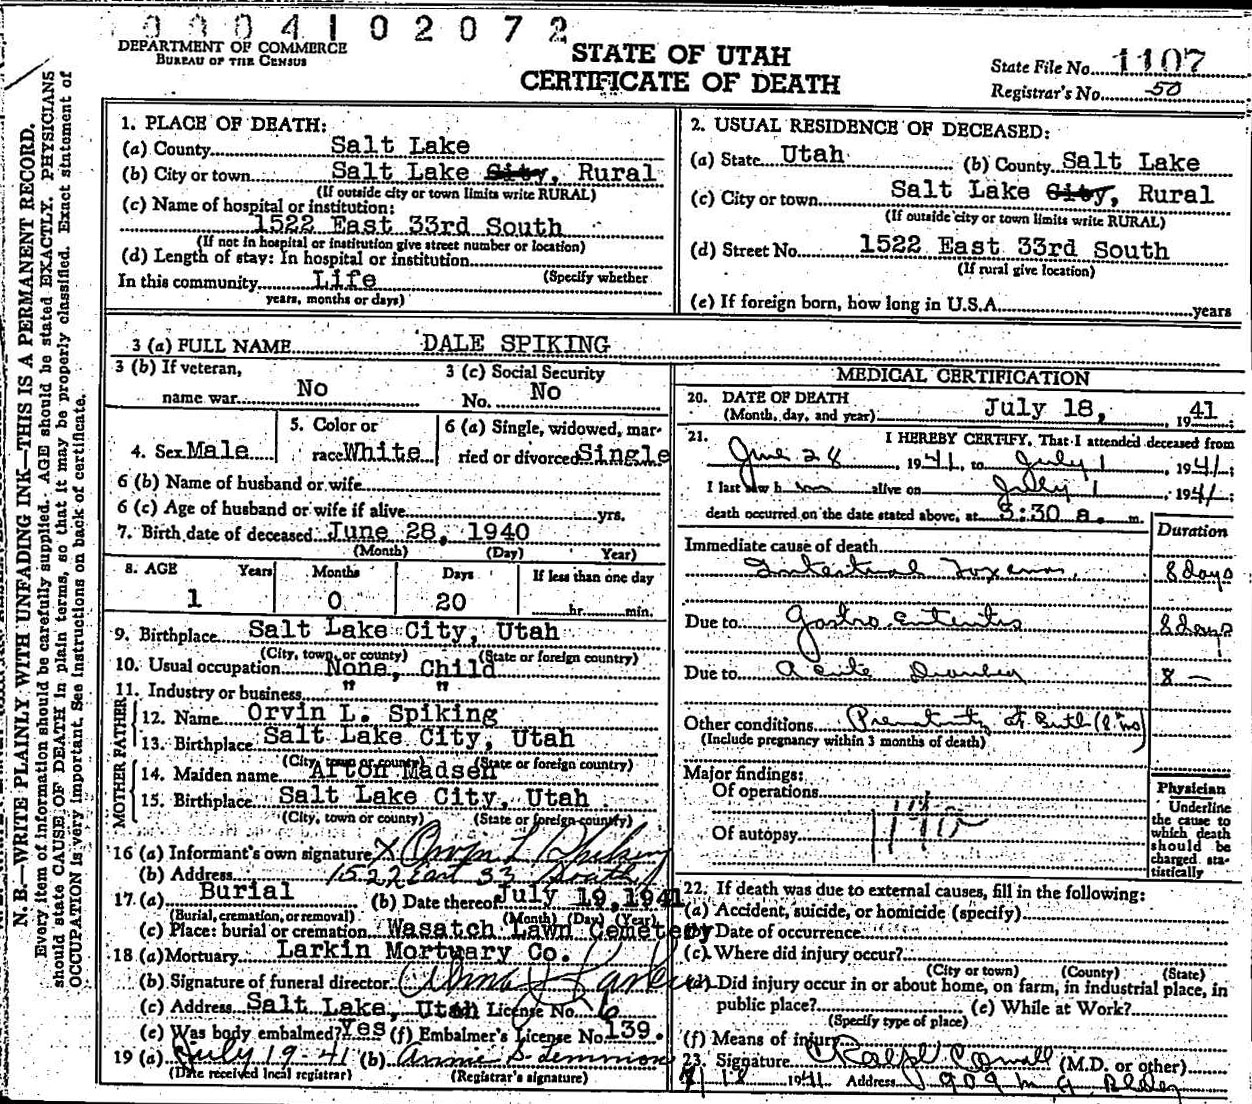 0004102072
DEPARTMENT OF COMMERCE
BUREAU OF THE CENSUS
STATE OF UTAH
CERTIFICATE OF DEATH
State File No. 1107
Registrar's No. 50
N. B.—WRITE PLAINLY WITH UNFADING INK—THIS IS A PERMANENT RECORD.
Every item of information should be carefully supplied. AGE should be stated EXACTLY. PHYSICIANS
should state CAUSE OF DEATH in plain terms, so that it may be properly classified. Exact statement of
OCCUPATION is very important. See instructions on back of certificate.
1. PLACE OF DEATH:
(a) County Salt Lake
(b) City or town Salt Lake City, Rural
(If outside city or town limits write RURAL)
(c) Name of hospital or institution:
1522 East 33rd South
(If not in hospital or institution give street number or location)
(d) Length of stay: In hospital or institution
(Specify whether
In this community Life
years, months or days)
2. USUAL RESIDENCE OF DECEASED:
(a) State Utah (b) County Salt Lake
(c) City or town Salt Lake City, Rural
(If outside city or town limits write RURAL)
(d) Street No. 1522 East 33rd South
(If rural give location)
(e) If foreign born, how long in U.S.A. years
3 (a) FULL NAME DALE SPIKING
3 (b) If veteran,
name war No
3 (c) Social Security
No. No
4. Sex Male
5. Color or
race White
6 (a) Single, widowed, mar-
ried or divorced Single
6 (b) Name of husband or wife
6 (c) Age of husband or wife if alive yrs.
7. Birth date of deceased June 28, 1940
(Month) (Day) Year)
8. AGE Years Months Days If less than one day
1 0 20 hr. min.
9. Birthplace Salt Lake City, Utah
(City, town, or county) (State or foreign country)
10. Usual occupation None, Child
11. Industry or business " "
FATHER
12. Name Orvin L. Spiking
13. Birthplace Salt Lake City, Utah
(City, town or county) (State or foreign country)
MOTHER
14. Maiden name Afton Madsen
15. Birthplace Salt Lake City, Utah
(City, town or county) (State or foreign country)
16 (a) Informant's own signature X Orvin L Spiking
(b) Address 1522 East 33 South
17. (a) Burial (b) Date thereof July 19, 1941
(Burial, cremation, or removal) (Month) (Day) (Year)
(c) Place: burial or cremation Wasatch Lawn Cemetery
18 (a) Mortuary Larkin Mortuary Co.
(b) Signature of funeral director Larkin
(c) Address Salt Lake, Utah License No. 6
(e) Was body embalmed? Yes (f) Embalmer's License No. 139.
19 (a) July 19-41 (b) Annie S.
(Date received local registrar) (Registrar's signature)
MEDICAL CERTIFICATION
20. DATE OF DEATH
(Month, day, and year) July 18, 1941;
21. I HEREBY CERTIFY, That I attended deceased from
June 28, 1941, to July 1, 1941;
I last saw him alive on July 1, 1941;
death occurred on the date stated above, at :30 a. m.
Duration
Immediate cause of death
Intestinal Toxemia, 8 days
Due to Gastro Enteritis 8 days
Due to Acute Diarrhea 8 —
Other conditions Prematurity at Birth (8 mo)
(Include pregnancy within 3 months of death)
Major findings:
Of operations
Of autopsy
Physician
Underline
the cause to
which death
should be
charged sta-
tistically
22. If death was due to external causes, fill in the following:
(a) Accident, suicide, or homicide (specify)
(b) Date of occurrence
(c) Where did injury occur?
(City or town) (County) (State)
(d) Did injury occur in or about home, on farm, in industrial place, in
public place? (e) While at Work?
(Specify type of place)
(f) Means of injury
23. Signature Ralph (M.D. or other)
7/18 1941 Address 909